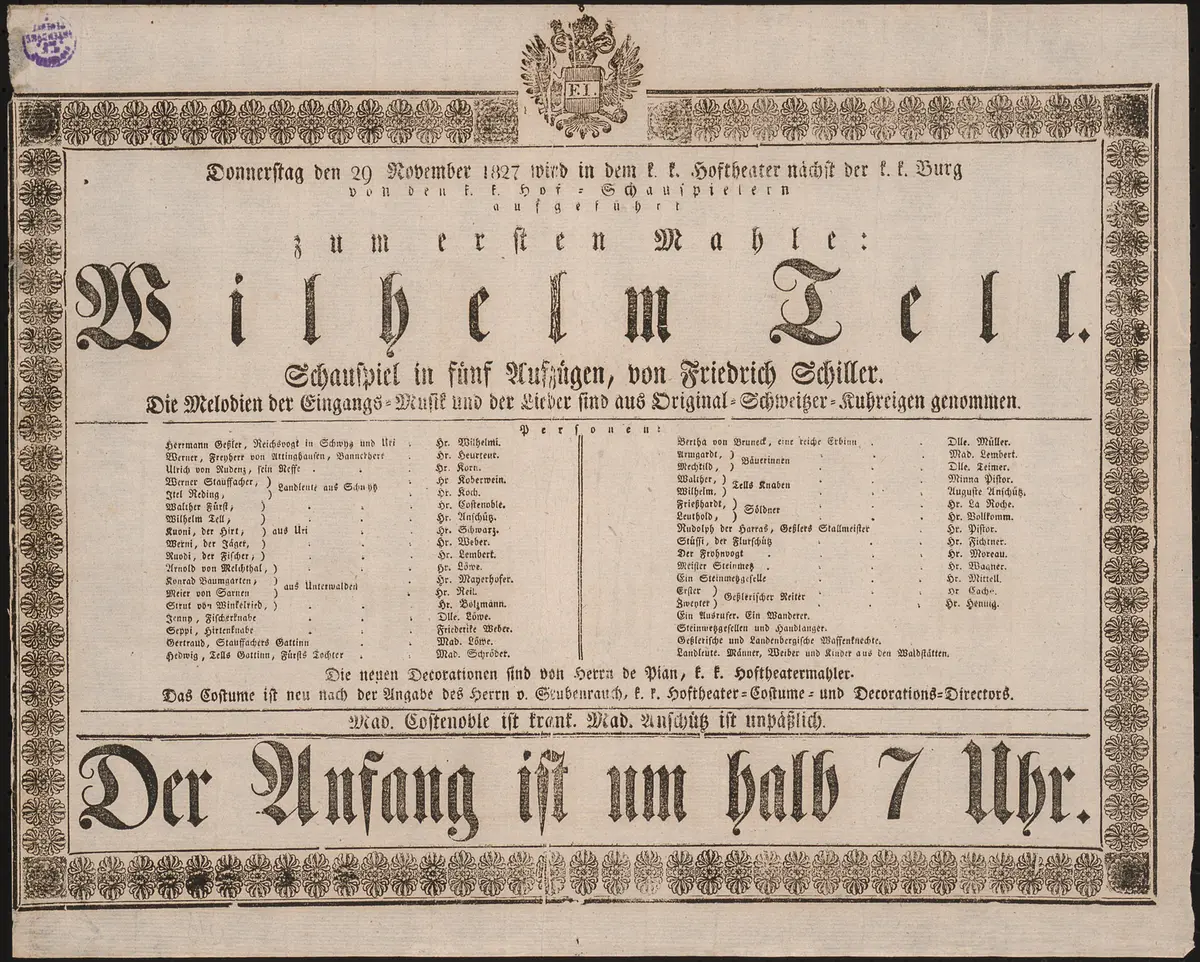 F. I.
Donnerstag den 29 November 1827 wird in dem k. k. Hoftheater nächst der k. k. Burg
von den k. k. Hof-Schauspielern
aufgeführt
zum ersten Mahle:
Wilhelm Tell.
Schauspiel in fünf Aufzügen, von Friedrich Schiller.
Die Melodien der Eingangs-Musik und der Lieder sind aus Original-Schweitzer-Kuhreigen genommen.
Personen:
Herrmann Geßler, Reichsvogt in Schwyz und Uri . Hr. Wilhelmi.
Werner, Freyherr von Attinghausen, Bannerherr . Hr. Heurteur.
Ulrich von Rudenz, sein Neffe . . . Hr. Korn.
Werner Stauffacher, ) Landleute aus Schwyz . Hr Koberwein.
Itel Reding, ) . Hr. Koch.
Walther Fürst, ) . . . Hr. Costenoble.
Wilhelm Tell, ) . . . Hr. Anschütz.
Kuoni, der Hirt, ) aus Uri . . Hr. Schwarz.
Werni, der Jäger, ) . . . Hr. Weber.
Ruodi, der Fischer, ) . . . Hr. Lembert.
Arnold von Melchthal, ) . . . Hr. Löwe.
Konrad Baumgarten, ) aus Unterwalden . Hr. Mayerhofer.
Meier von Sarnen ) . Hr. Reil.
Strut von Winkelried, ) . . . Hr. Bolzmann.
Jenny, Fischerknabe . . . Dlle. Löwe.
Seppi, Hirtenknabe . . . Friederike Weber.
Gertraud, Stauffachers Gattinn . . Mad. Löwe.
Hedwig, Tells Gattinn, Fürsts Tochter . . Mad. Schröder.
Bertha von Bruneck, eine reiche Erbinn . . Dlle. Müller.
Armgardt, ) Bäuerinnen . . . Mad. Lembert.
Mechtild, ) . . . Dlle. Teimer.
Walther, ) Tells Knaben . . . Minna Pistor.
Wilhelm, ) . . . Auguste Anschütz.
Frießhardt, ) Söldner . . . Hr. La Roche.
Leuthold, ) . . . Hr. Vollkomm.
Rudolph der Harras, Geßlers Stallmeister . . Hr. Pistor.
Stüssi, der Flurschütz . . . Hr. Fichtner.
Der Frohnvogt . . . . Hr. Moreau.
Meister Steinmetz . . . . Hr. Wagner.
Ein Steinmetzgeselle . . . Hr. Mittell.
Erster ) Geßlerischer Reiter . . Hr Cache.
Zweyter ) . . Hr. Hennig.
Ein Ausrufer. Ein Wanderer.
Steinmetzgesellen und Handlanger.
Geßlerische und Landenbergische Waffenknechte.
Landleute. Männer, Weiber und Kinder aus den Waldstätten.
Die neuen Decorationen sind von Herrn de Pian, k. k. Hoftheatermahler.
Das Costume ist neu nach der Angabe des Herrn v. Stubenrauch, k. k. Hoftheater-Costume- und Decorations-Directors.
Mad. Costenoble ist krank. Mad. Anschütz ist unpäßlich.
Der Anfang ist um halb 7 Uhr.